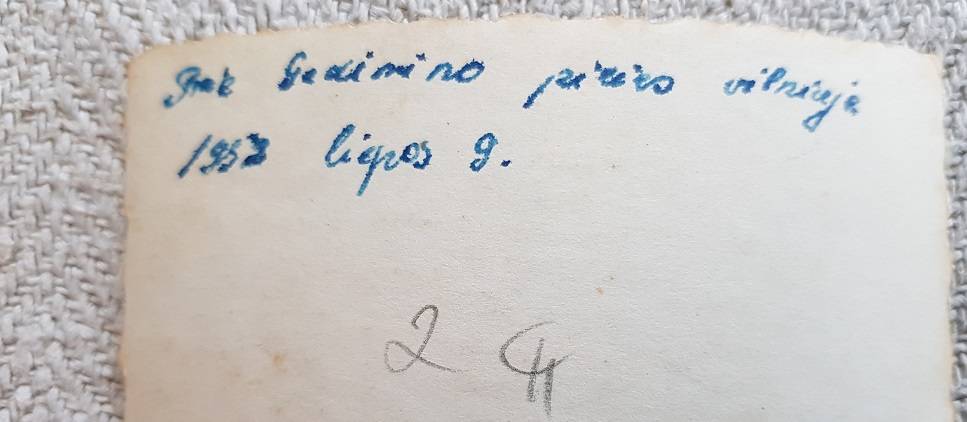 Prie Gedimino pilies vilniuje
1953 liepos 9.
2